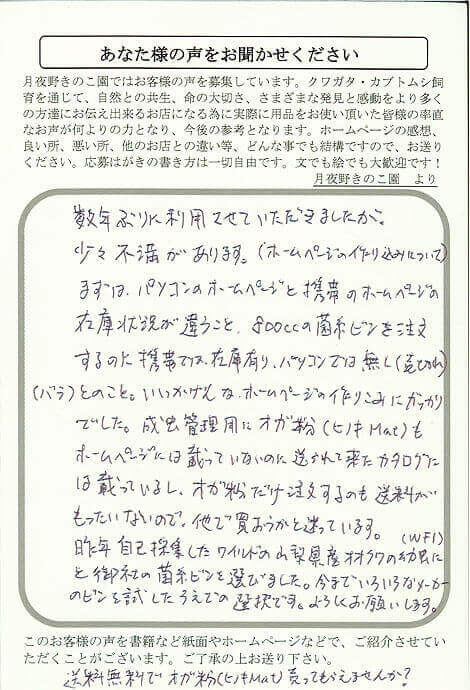 あなた様の声をお聞かせください
月夜野きのこ園ではお客様の声を募集しています。クワガタ・カブトムシ飼
育を通じて、自然との共生、命の大切さ、さまざまな発見と感動をより多く
の方達にお伝え出来るお店になる為に実際に用品をお使い頂いた皆様の率直
なお声が何よりの力となり、今後の参考となります。ホームページの感想、
良い所、悪い所、他のお店との違い等、どんな事でも結構ですので、お送り
ください。応募はがきの書き方は一切自由です。文でも絵でも大歓迎です！
月夜野きのこ園 より
数年ぶりに利用させていただきましたが、
少々不満があります。(ホームページの作り込みについて)
まずは、パソコンのホームページと携帯のホームページの
在庫状況が違うこと、800ccの菌糸ビンを注文
するのに携帯では在庫有り、パソコンでは無し(売切れ)
(バラ)とのこと。いいかげんな、ホームページの作りこみにガッカリ
でした。成虫管理用にオガ粉(ヒノキMat)も
ホームページには載っていないのに送られて来たカタログに
は載っているし、オガ粉だけ注文するのも送料が
もったいないので、他で買おうかと迷っています。
(WF1)
昨年自己採集したワイルドの山梨県産オオクワの幼虫に
と御社の菌糸ビンを選びました。今までいろいろなメーカー
のビンを試したうえでの選択です。よろしくお願いします。
このお客様の声を書籍など紙面やホームページなどで、ご紹介させてい
ただくことがございます。ご了承の上お送り下さい。
送料無料でオガ粉(ヒノキMat)売ってもらえませんか?